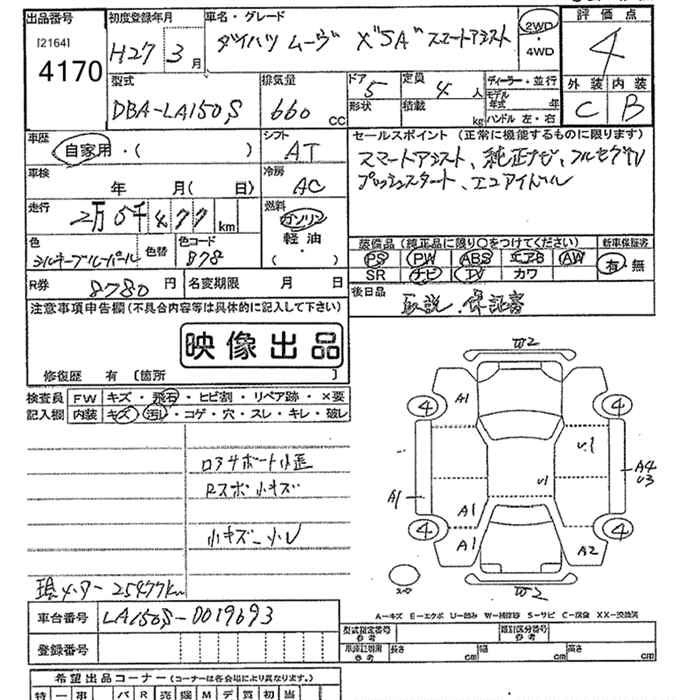 出品番号 初度登録年月 車名・グレード 評価点
[2164]
4170
H27 3月 ダイハツ ムーヴ X"SA" スマートアシスト 2WD・4WD 4
外装 内装
C B
型式 排気量 ドア 定員 ディーラー・並行
DBA-LA150S 660cc 5 4人
形状 積載 kg モデル年式 年 ハンドル 左・右
車歴 シフト セールスポイント (正常に機能するものに限ります)
自家用・( ) AT
スマートアシスト、純正ナビ、フルセグTV
プッシュスタート、エコアイドル
車検 年 月( 日) 冷房 AC
走行 2万5千477km 燃料 ガソリン 軽油 ・( )
色 色替 色コード
シルキーブルーパール 878
装備品 (純正品に限り○をつけてください) 新車保証書
PS PW ABS エアB AW 有・無
SR ナビ TV カワ
R券 8780円 名変期限 月 日
後日品 取説、保証書
注意事項申告欄(不具合内容等は具体的に記入して下さい)
映像出品
修復歴 有 〔箇所 〕
検査員記入欄 FW キズ・飛石・ヒビ割・リペア跡・×要
内装 キズ・汚れ・コゲ・穴・スレ・キレ・破レ
Rスポ小キズ
25477km
車台番号 LA150S-0019693
登録番号
W2
A1
4 4
U1
U1
A1 A4
U3
A1
4 4
A1 A2
W2
A-キズ E-エクボ U-凹み W-補修跡 S-サビ C-腐食 XX-交換済
型式指定番号 参考 類別区分番号 参考
車庫証明用 参考 長さ cm 幅 cm 高さ cm
希望出品コーナー (コーナーは各会場により異なります。)